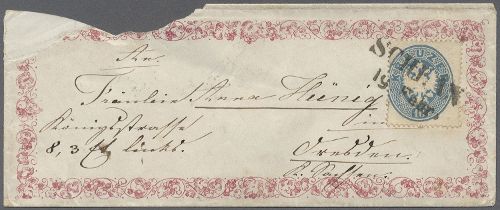 An
Fräulein Anna Hönig
in
Königsstrasse
8, 3 Et. links.
Dresden.
K. Sachsen.